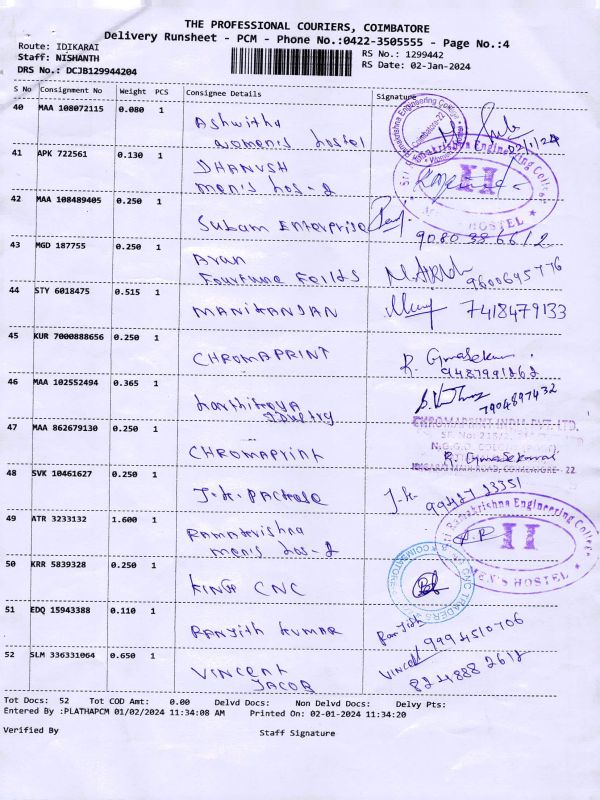 THE PROFESSIONAL COURIERS, COIMBATORE
Delivery Runsheet - PCM - Phone No.:0422-3505555 - Page No.:4
Route: IDIKARAI
RS No.: 1299442
Staff: NISHANTH
RS Date: 02-Jan-2024
DRS No.: DCJB129944204
S No Consignment No Weight PCS Consignee Details Signature
40 MAA 108072115 0.080 1
Ashwitha
women's hostel
41 APK 722561 0.130 1
DHANUSH
men's hos-2
42 MAA 108489405 0.250 1
Subam Enterprise
9080386612
43 MGD 187755 0.250 1
Arun
9600695776
44 STY 6018475 0.515 1
MANIKANDAN 7418479133
45 KUR 7000888656 0.250 1
CHROMAPRINT R. Gunasekaran
9487991262
46 MAA 102552494 0.365 1
7904897432
47 MAA 862679130 0.250 1
CHROMAPRINT INDIA PVT LTD.
CHROMAPrint R. Gunasekaran
48 SVK 10461627 0.250 1
J.K. Package J.K.
49 ATR 3233132 1.600 1
Sri Ramakrishna Engineering College
II
MEN'S HOSTEL
Ramakrishna
men's hos-2
50 KRR 5839328 0.250 1
KING CNC
51 EDQ 15943388 0.110 1
RANJITH KUMAR Ranjith 9994510706
52 SLM 336331064 0.650 1
VINCENT
JACOB
Vincent
8248882612
Tot Docs: 52 Tot COD Amt: 0.00 Delvd Docs: Non Delvd Docs: Delvy Pts:
Entered By :PLATHAPCM 01/02/2024 11:34:08 AM Printed On: 02-01-2024 11:34:20
Verified By Staff Signature